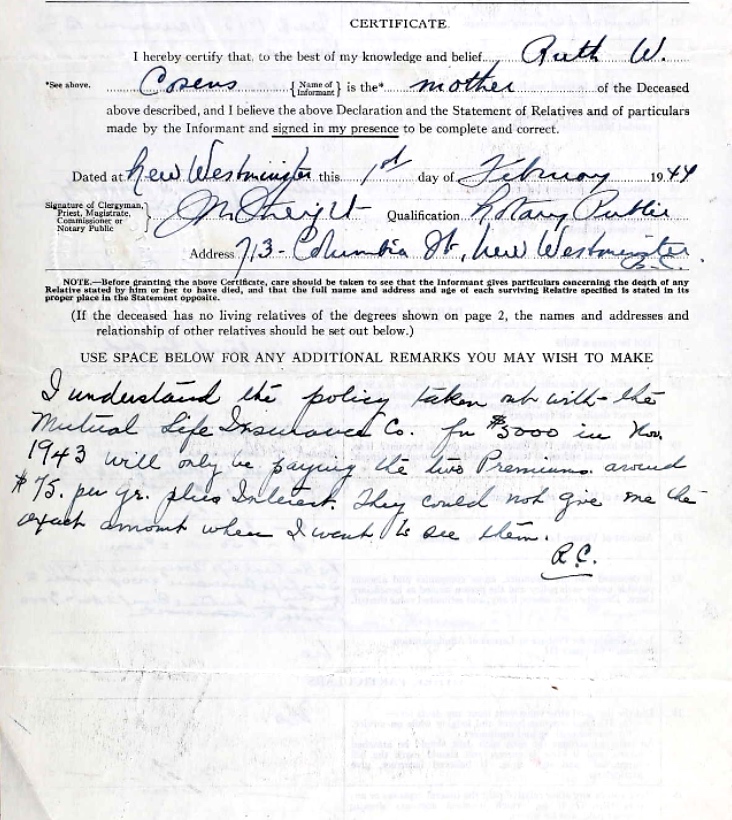 CERTIFICATE.
I hereby certify that, to the best of my knowledge and belief Ruth W.
*See above. Cosens {Name of Informant} is the* mother of the Deceased
above described, and I believe the above Declaration and the Statement of Relatives and of particulars
made by the Informant and signed in my presence to be complete and correct.
Dated at New Westminster this 1st day of February 1944
Signature of Clergyman, Priest, Magistrate, Commissioner or Notary Public } Qualification Notary Public
Address 713 - Columbia St, New Westminster
B.C.
NOTE.—Before granting the above Certificate, care should be taken to see that the Informant gives particulars concerning the death of any
Relative stated by him or her to have died, and that the full name and address and age of each surviving Relative specified is stated in its
proper place in the Statement opposite.
(If the deceased has no living relatives of the degrees shown on page 2, the names and addresses and
relationship of other relatives should be set out below.)
USE SPACE BELOW FOR ANY ADDITIONAL REMARKS YOU MAY WISH TO MAKE
I understand the policy taken out with the
Mutual Life Insurance Co. for $5000 in Nov.
1943 will only be paying the two Premiums around
$75. per yr. plus Interest. They could not give me the
exact amount when I went to see them.
R.C.